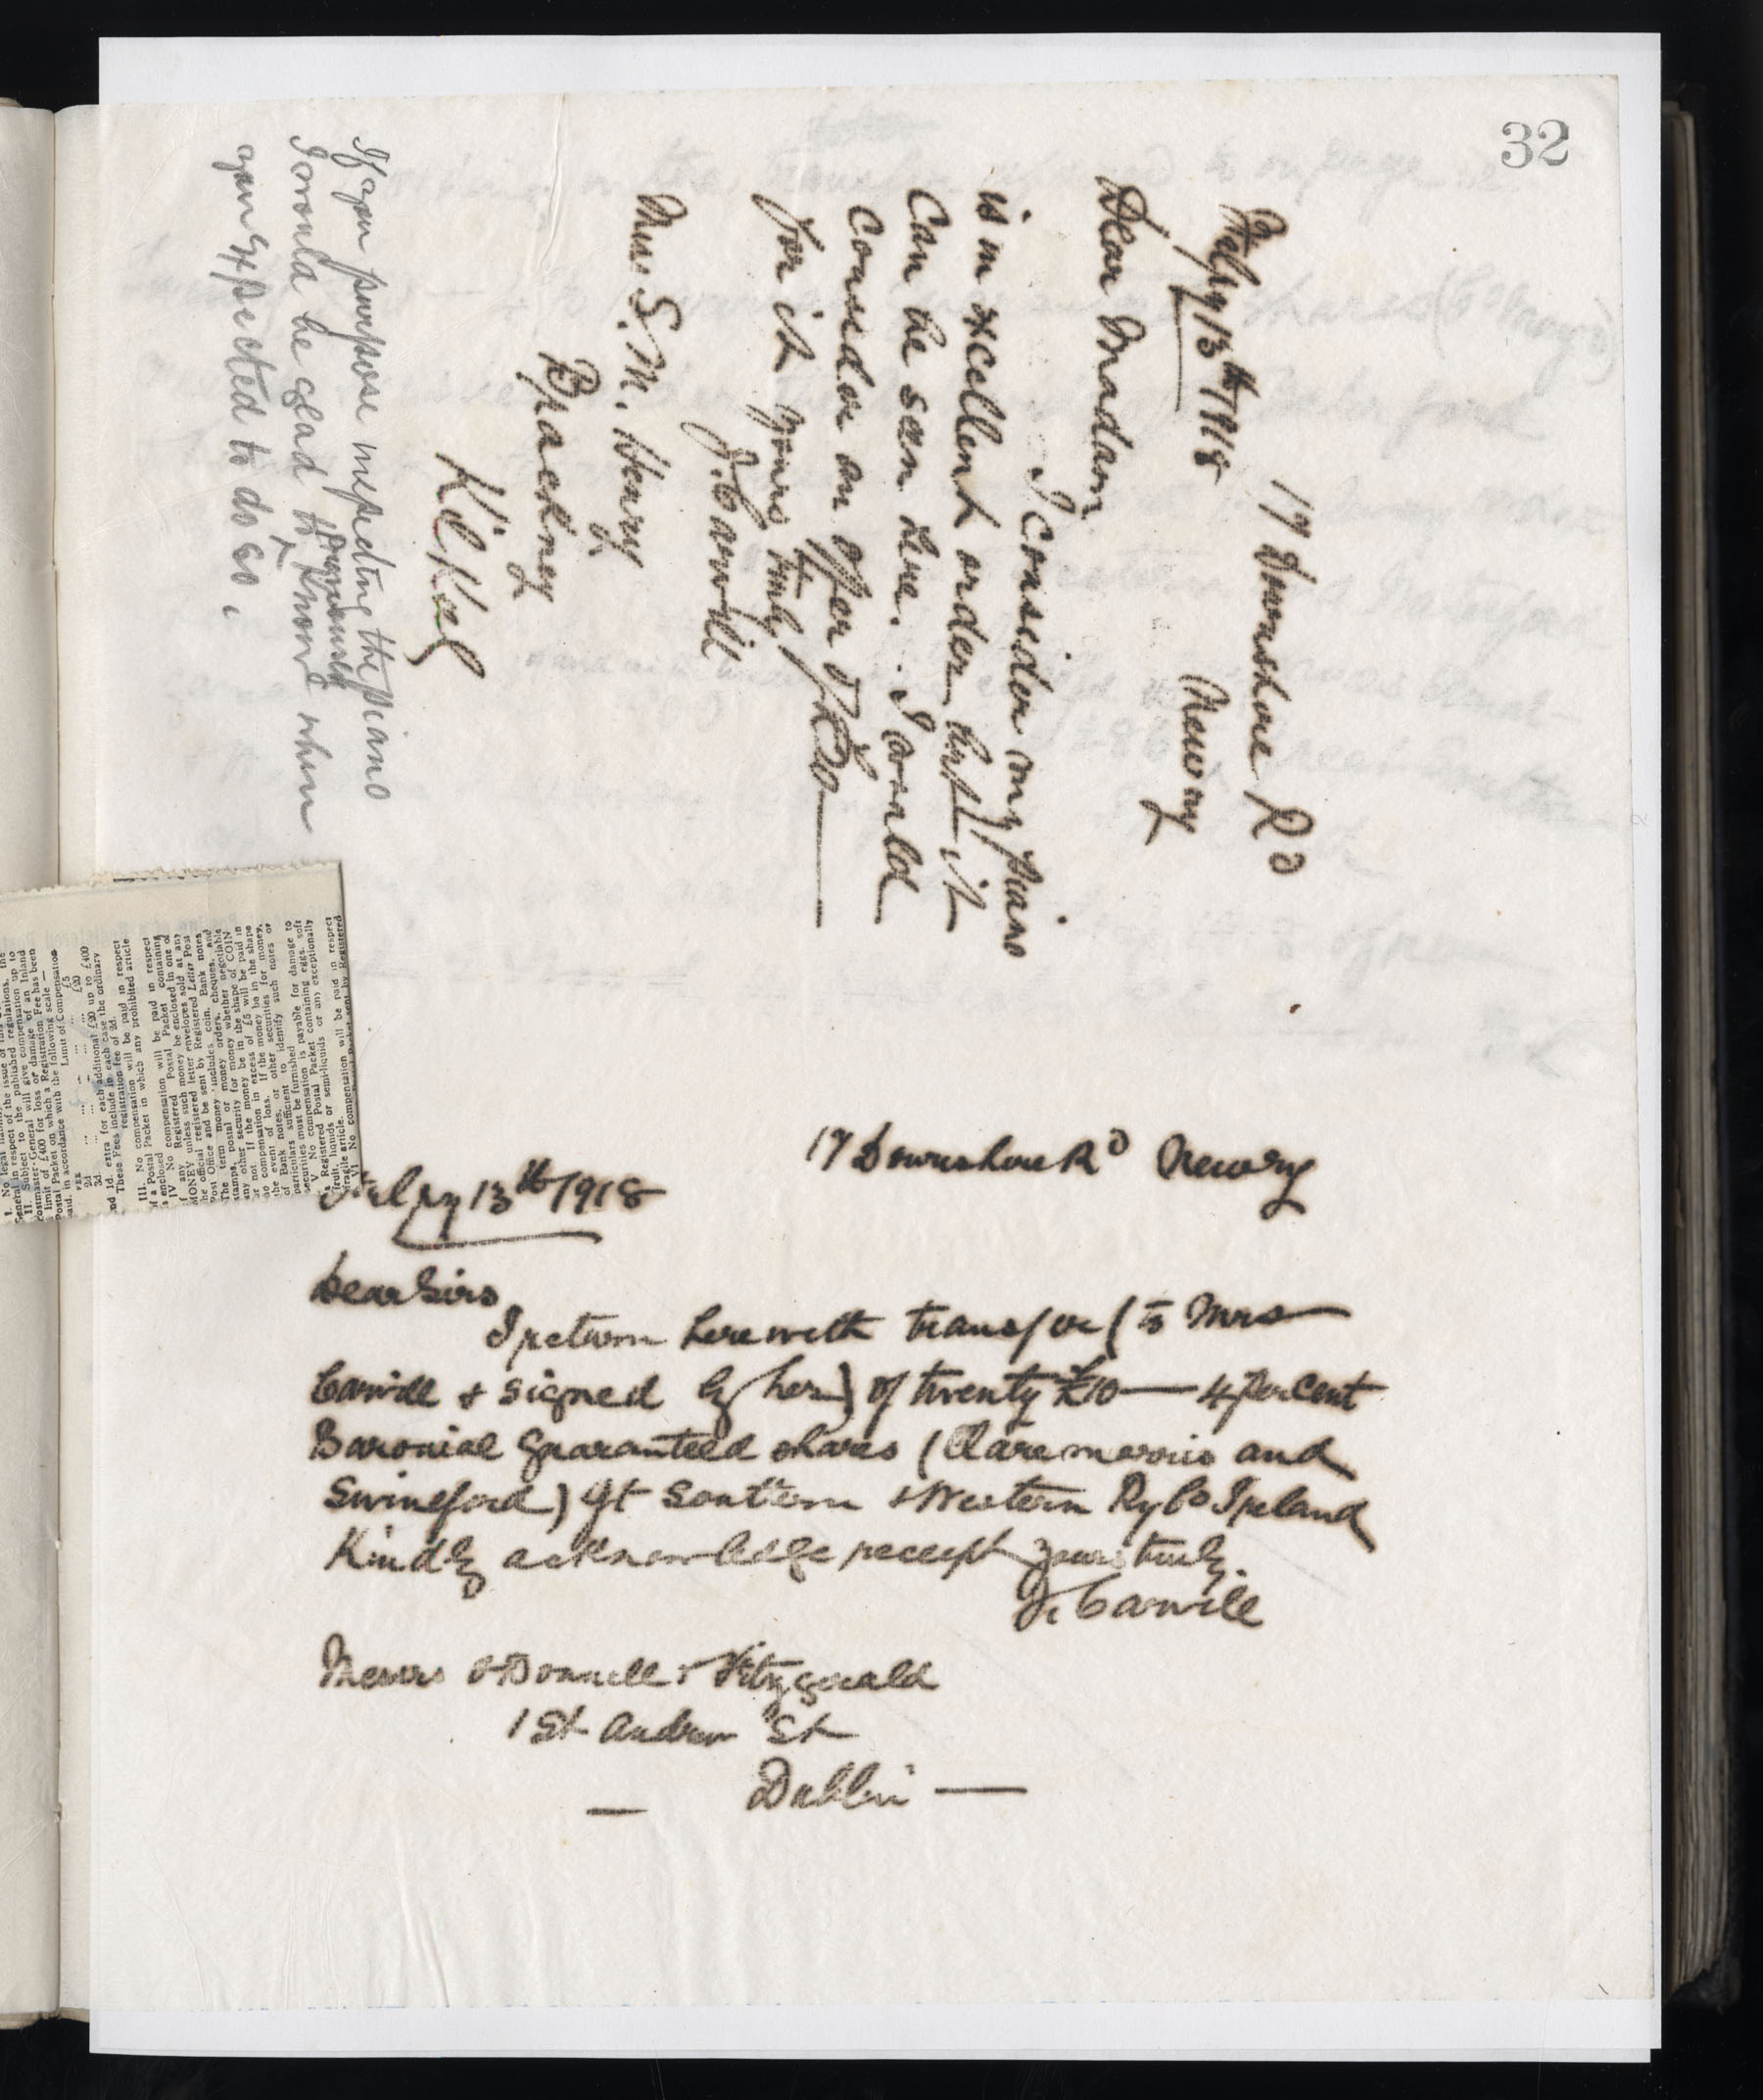 32
17 Downshire Rd
Newry
July 13th 1918
Dear Madam
I consider my piano
is in excellent order but it
can be seen here. I would
consider an offer of £20
for it yours truly
J. Carvill
Mrs. S. M. Henry
Brackney
Kilkeel
If you purpose inspecting the piano
I would be glad to know when
previously
you expected to do so.
17 Downshire Rd Newry
July 13th 1918
Dear Sirs
I return herewith transfer (to Mrs
Carvill & signed by her) of twenty £10 — 4 per cent
Baronial Guaranteed shares (Claremorris and
Swineford) Gt Southern & Western Ry Co Ireland
Kindly acknowledge receipt yours truly.
J. Carvill
Messrs O'Donnell & Fitzgerald
1 St Andrew St
— Dublin —
in respect of the published regulations, the
II. Subject to the published regulations
Postmaster-General will give compensation up to
limit of £400 for loss or damage of an Inland
Postal Packet on which a Registration Fee has been
paid, in accordance with the following scale —
FEE Limit of Compensation
2d ... ... £5
3d ... ... £20
and 1d. extra for each additional £20 up to £400
These Fees include in each case the ordinary
registration fee of 2d.
III. No compensation will be paid in respect
of a Postal Packet in which any prohibited article
is enclosed
IV No compensation will be paid in respect
of any Registered Postal Packet containing
MONEY unless such money be enclosed in one of
the official registered letter envelopes sold at any
Post Office and be sent by Registered Letter Post
The term money includes coin, Bank notes,
stamps, postal or money orders, cheques, and
any other security for money whether negotiable
or not. If the money be in the shape of COIN
no compensation in excess of £5 will be paid in
the event of loss. If the money be in the shape
of Bank notes, or other securities for money,
particulars sufficient to identify such notes or
securities must be furnished
V No compensation is payable for damage to
a Registered Postal Packet containing eggs, soft
fruit, liquids or semi-liquids or any exceptionally
fragile article.
VI No compensation will be paid in respect